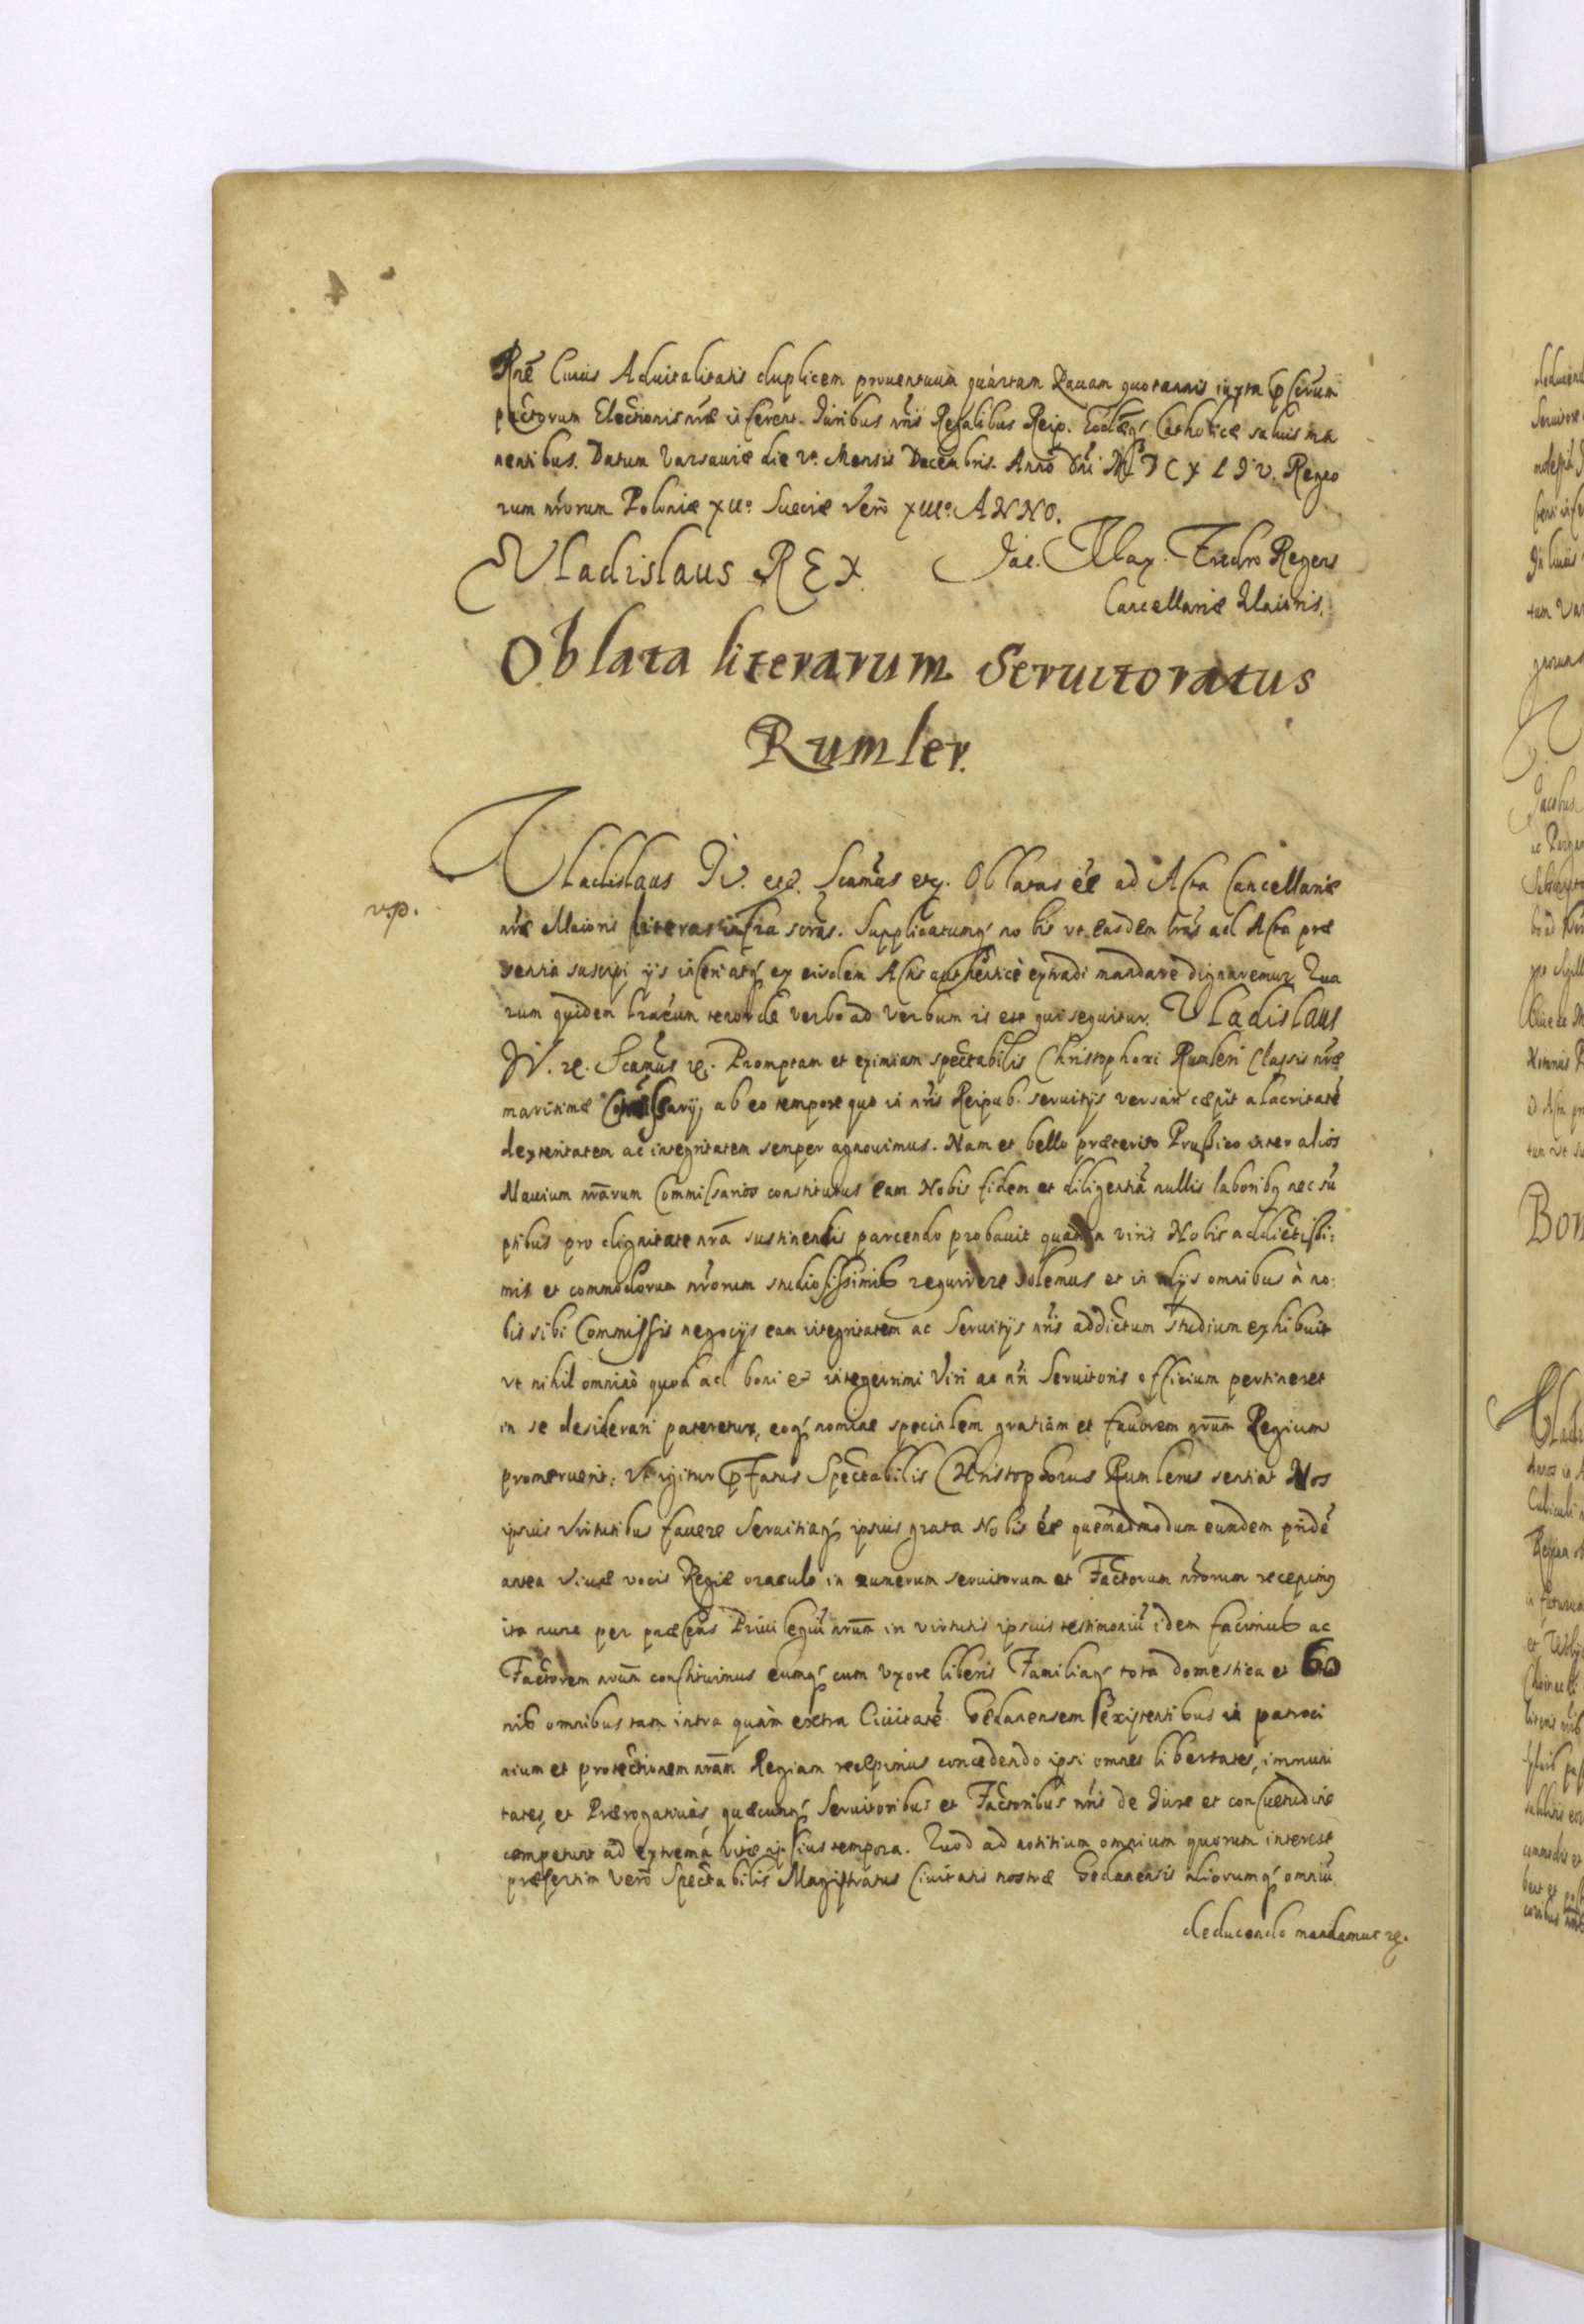 Rnē Cuius Aduitalitatis duplicem prouentuum quartam Rauam quotannis iuxta
pactorum Electionis nræ inferent. Iuribus nris Regalibus Reip. Ecclæq́ Catholicæ saluis ma
nentibus. Datum Varsauiæ die v. Mensis Decembris. Anno Dni MDCXLIV. Regno
rum nrorum Poloniæ XIIo Sueciæ Vero XIIIo ANNO.
Vladislaus REX. Jac. Max. Fredro Regens
Cancellariæ Maioris.
Oblata literarum Seruitoratus
Rumler.
Vladislaus IV. etc. Scamus etc. Oblatas eē ad Acta Cancellariæ
v.p.
nræ Maioris literas infra scrās. Supplicatumq́ nobis vt easdem lrās ad Acta præ
sentia suscipi ijs inseri atq́ ex eisdem Actis authenticè extradi mandare dignaremur. Qua
rum quidem lrarum tenor de verbo ad verbum is est qui sequitur. Vladislaus
IV. etc. Scamus etc. Promptam et eximiam spectabilis Christophori Rumleri Classis nræ
maritimæ ab eo tempore quo in nris Reipub. seruitijs versari cæpit alacritatē
dexteritatem ac integritatem semper agnouimus. Nam et bello præterito Prussico inter alios
Nauium nrarum Commissarios constitutus eam Nobis fidem et diligentiā nullis laboribq nec sū
ptibus pro dignitate nra sustinendis parcendo probauit quam in viris Nobis addictissi:
mis et commodorum nrorum studiosissimis requirere solemus et in alijs omnibus à no:
bis sibi Commissis negocijs eam integritatem ac Seruitijs nris addictum studium exhibuit
vt nihil omninò quod ad boni et integerrimi Viri ac nri Seruitoris officium pertineret
in se desiderari pateretur, eoq́ nomine specialem gratiam et fauorem nrum Regium
promeruerit: Vt igitur pfatus Spectabilis Christophorus Rumlerus sentiat Nos
ipsius Virtutibus fauere Seruitiaq́ ipsius grata Nobis eē quemadmodum eundem pridē
antea viuæ vocis Regiæ oraculo in numerum seruitorum et Factorum nrorum recepimq
ita nunc per præsens Priuilegiū nrum in virtutis ipsius testimoniū idem facimus ac
Factorem nrum constituimus eumq́ cum vxore liberis Familiaq́ tota domestica et bo
nis omnibus tam intra quàm extra Ciuitatē Gedanensem existentibus in patroci
nium et protectionem nram Regiam recepimus concedendo ipsi omnes libertates, immuni
tates, et Prærogatiuas, quæcunq́ Seruitoribus et Factoribus nris de Iure et consuetudine
competunt ad extrema vitæ ipsius tempora. Quod ad notitiam omnium quorum interest
præsertim verò Spectabilis Magistratus Ciuitatis nostræ Gedanensis aliorumq́ omniū
deducendo mandamus etc.